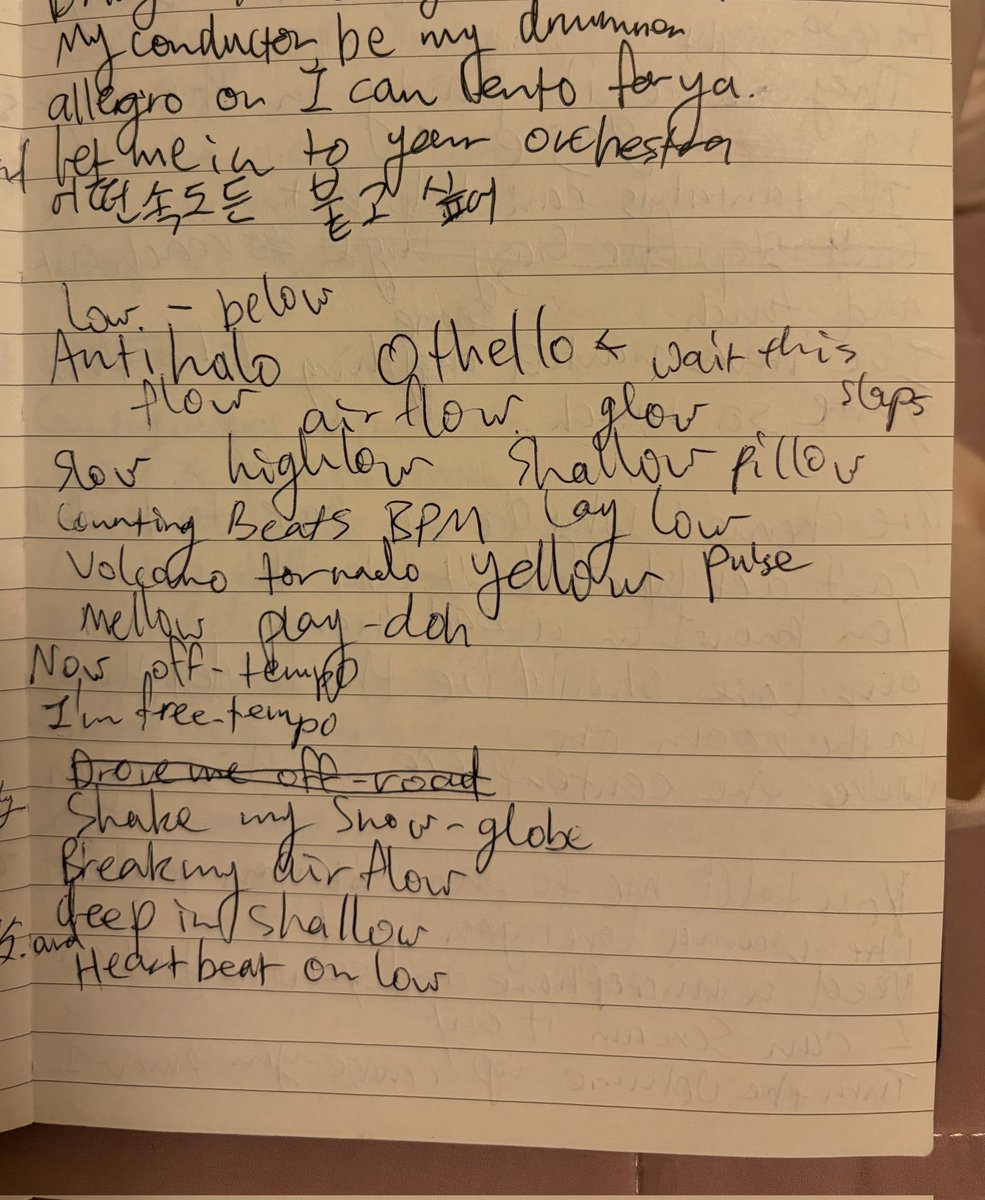 My conductor, be my drummer
allegro or I can lento for ya.
let me in to your orchestra
어떤속도든 붙고 싶어
low. - below
Antihalo Othello ← wait this slaps
flow airflow glow
slow highlow shallow pillow
Counting Beats BPM Lay low
Volcano tornado yellow pulse
Mellow play-doh
Now off-tempo
I'm free-tempo
Drove me off-road
Shake my Snow-globe
Break my airflow
deep in shallow
and
Heartbeat on low